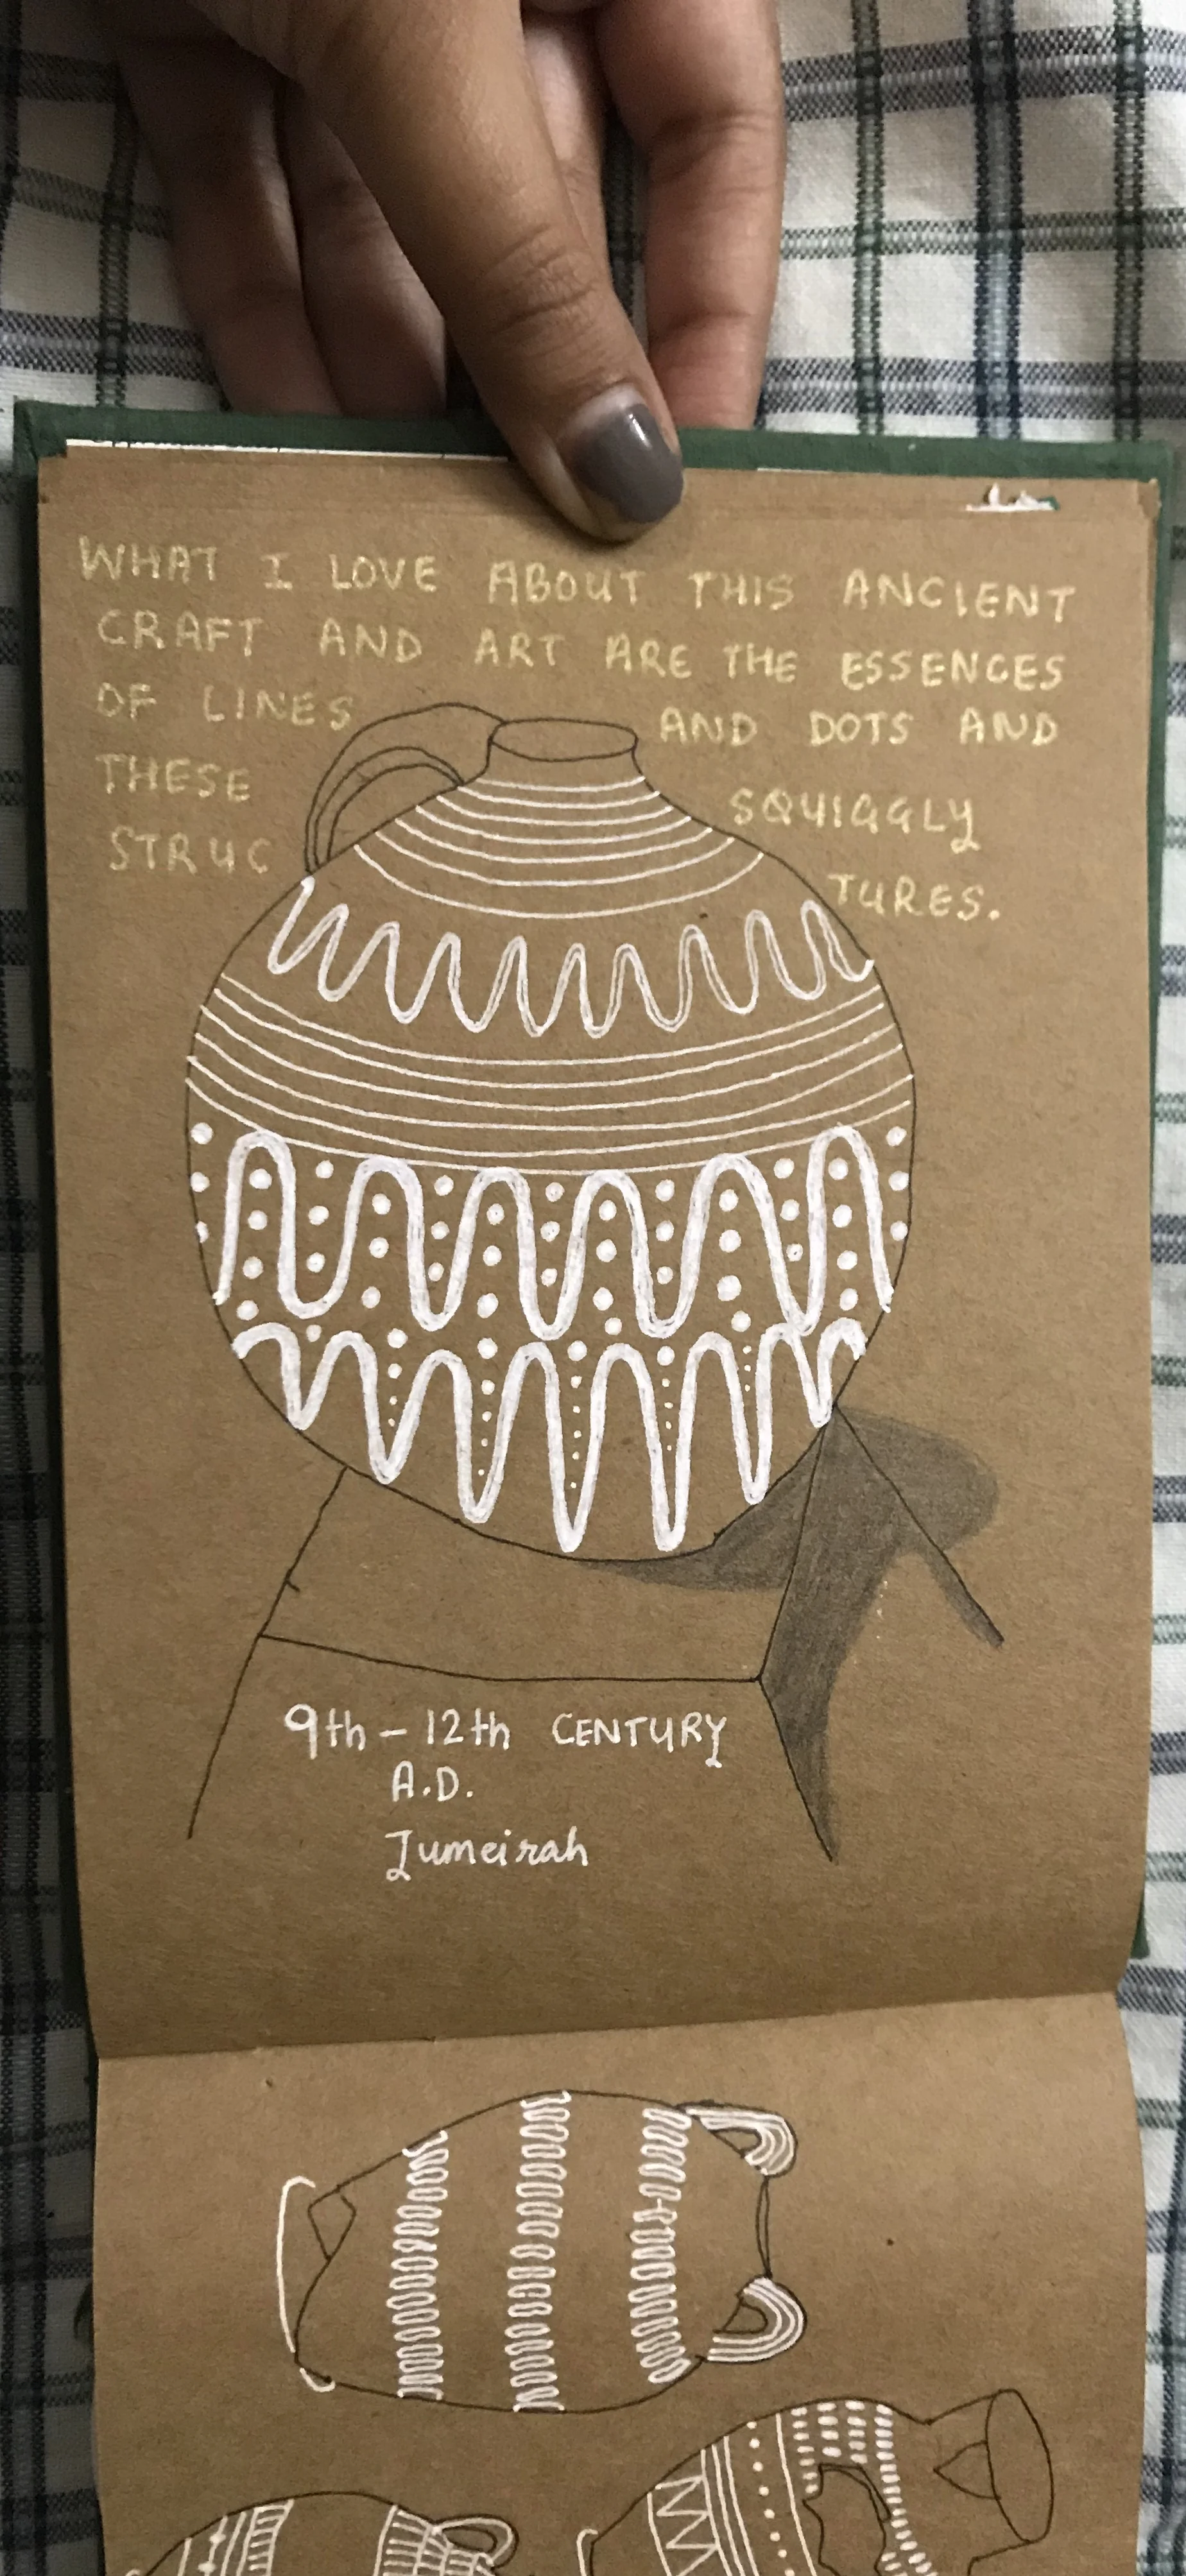 WHAT I LOVE ABOUT THIS ANCIENT
CRAFT AND ART ARE THE ESSENCES
OF LINES AND DOTS AND
THESE SQUIGGLY
STRUC TURES.
9th - 12th CENTURY
A.D.
Jumeirah